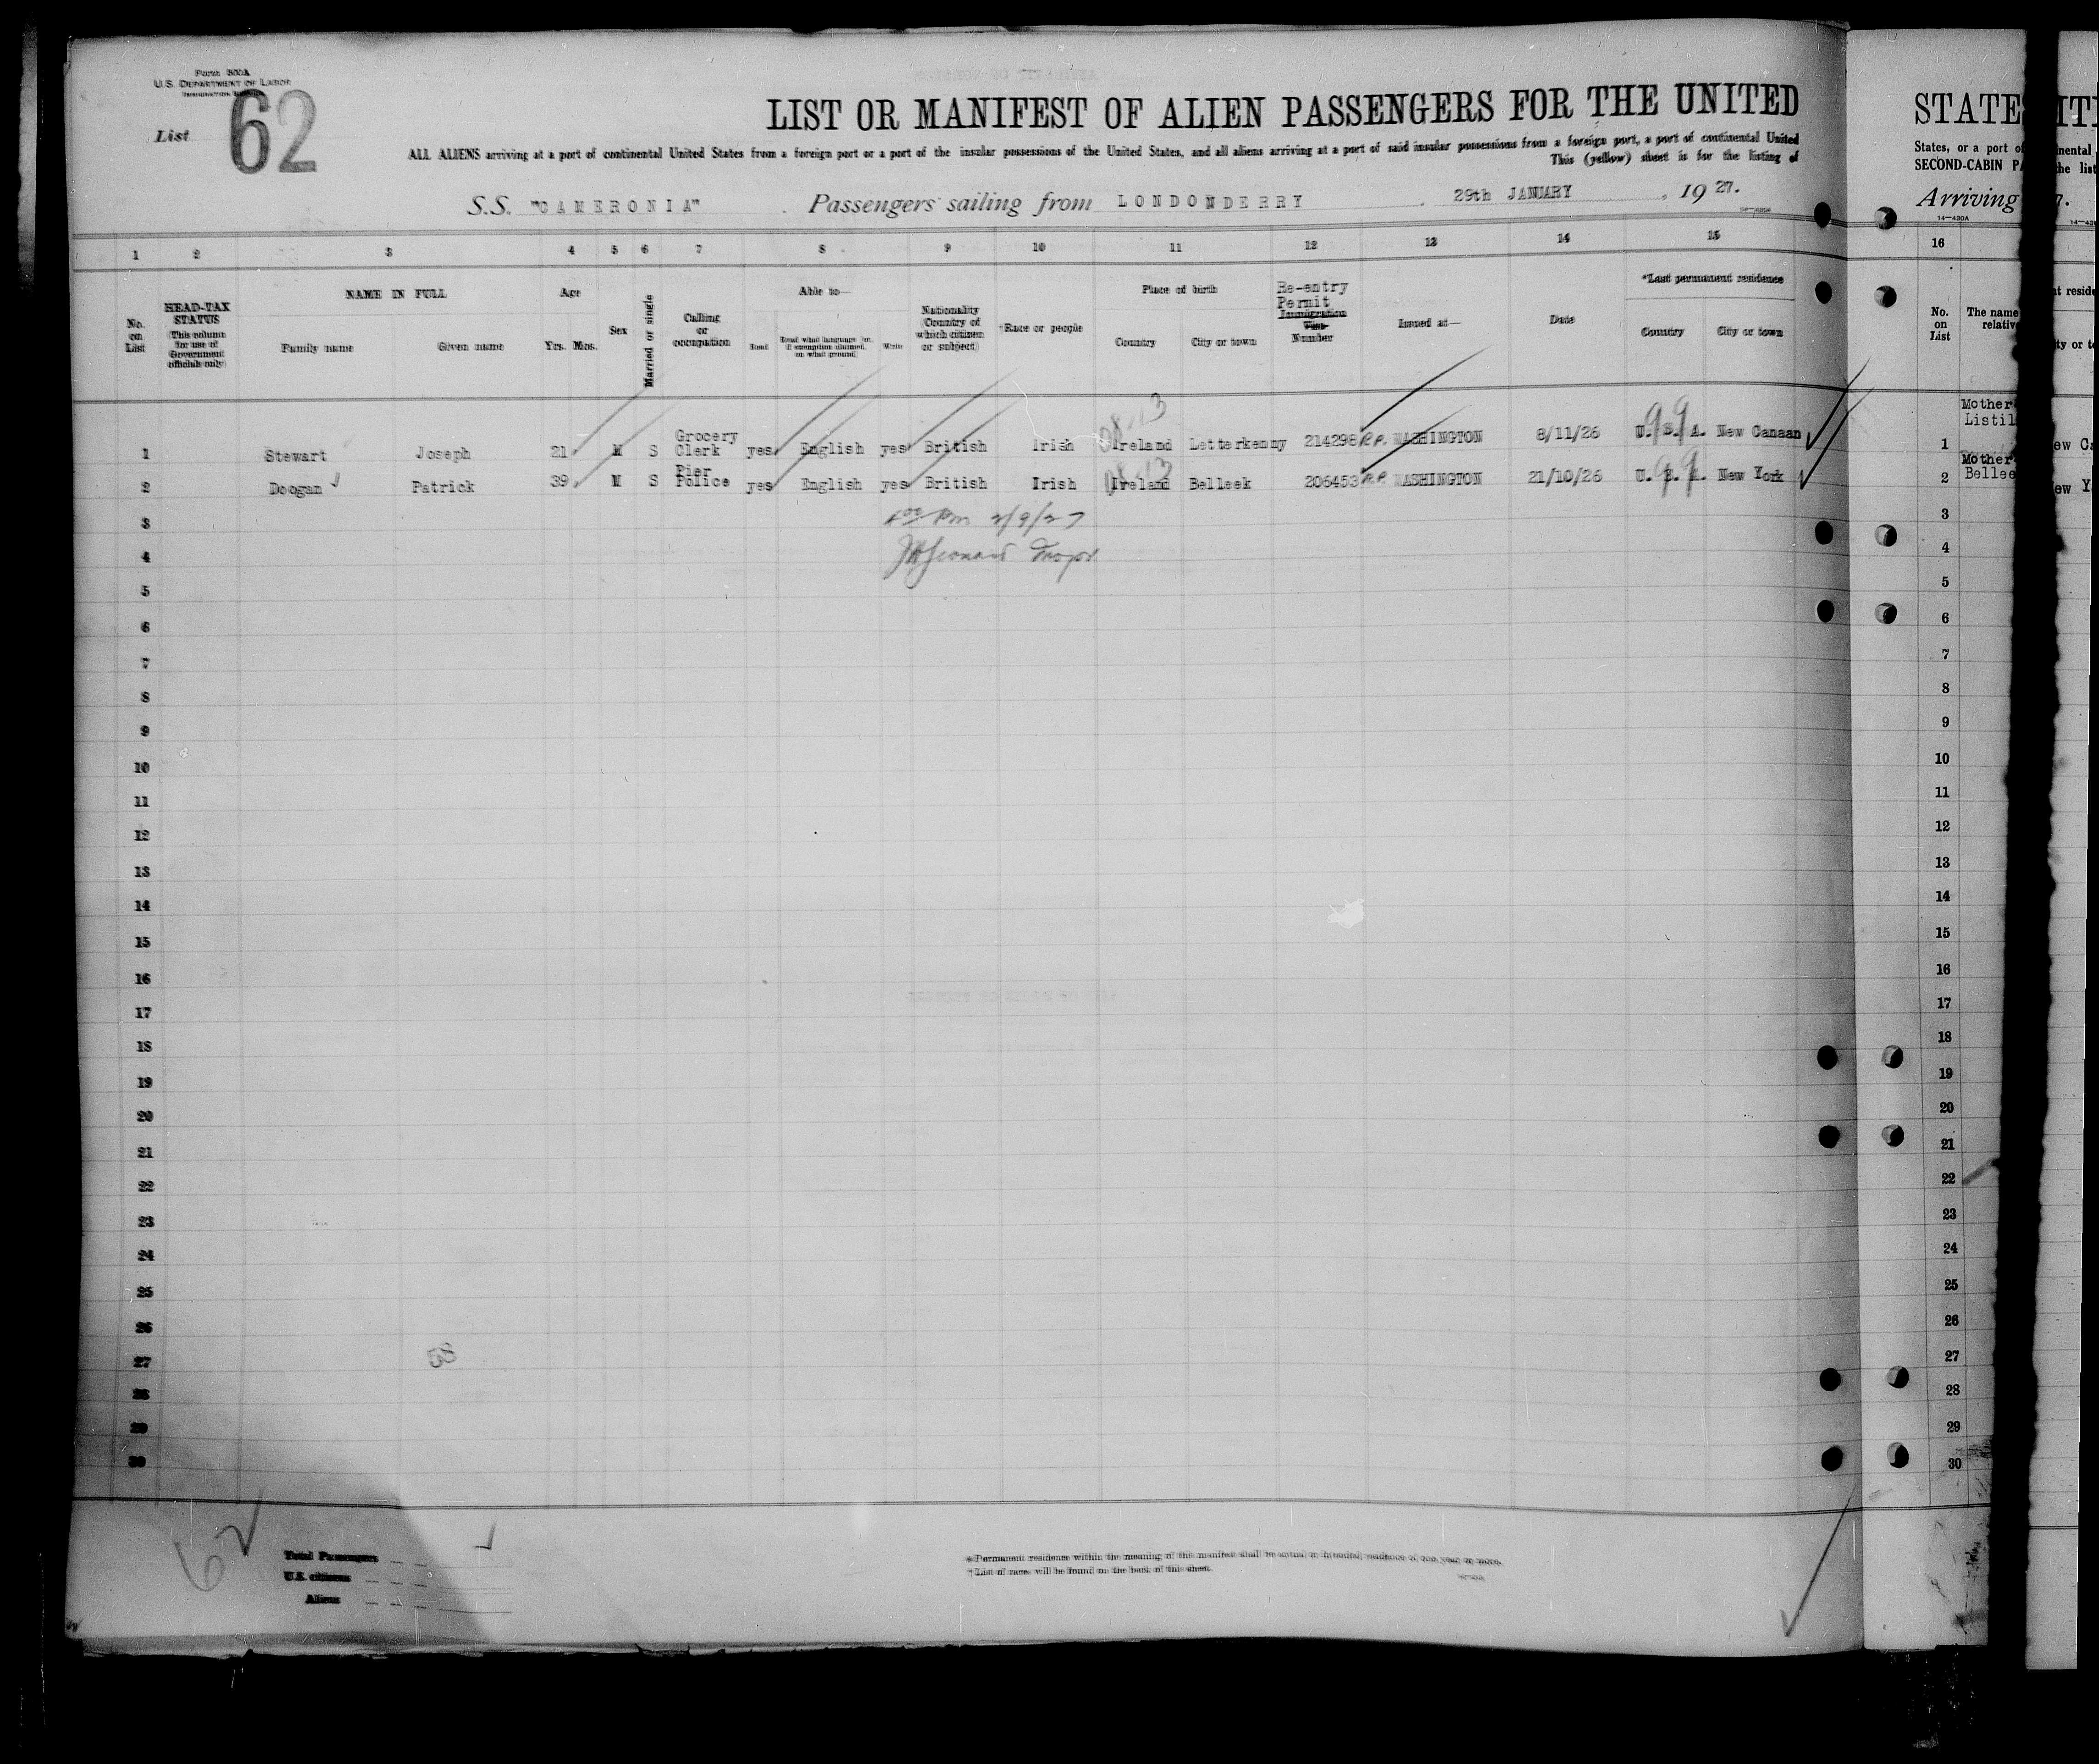 Form 500A
U.S. DEPARTMENT OF LABOR
List 62
LIST OR MANIFEST OF ALIEN PASSENGERS FOR THE UNITED
ALL ALIENS arriving at a port of continental United States from a foreign port or a port of the insular possessions of the United States, and all aliens arriving at a port of said insular possessions from a foreign port, a port of continental United
This (yellow) sheet is for the listing of
S.S. "CAMERONIA" Passengers sailing from LONDONDERRY, 29th JANUARY, 1927.
1 2 3 4 5 6 7 8 9 10 11 12 13 14 15
No. on List
HEAD-TAX STATUS (This column for use of Government officials only)
NAME IN FULL
Family name Given name
Age
Yrs. Mos.
Sex
Married or single
Calling or occupation
Able to—
Read Read what language [or, if exemption claimed, on what ground] Write
Nationality (Country of which citizen or subject)
†Race or people
Place of birth
Country City or town
Re-entry Permit
Immigration Visa Number
Issued at—
Date
*Last permanent residence
Country City or town
1 Stewart Joseph 21 M S Grocery Clerk yes English yes British Irish Ireland Letterkenny 214298 R.P. WASHINGTON 8/11/26 U. S. A. New Canaan
2 Doogan Patrick 39 M S Pier Police yes English yes British Irish Ireland Belleek 206453 R.P. WASHINGTON 21/10/26 U. S. A. New York
3
4
5
6
7
8
9
10
11
12
13
14
15
16
17
18
19
20
21
22
23
24
25
26
27
28
29
30
2/9/27
58
62
Total Passengers
U.S. citizens
Aliens
*Permanent residence within the meaning of this manifest shall be actual or intended residence of one year or more.
†List of races will be found on the back of this sheet.
STATE
States, or a port of
SECOND-CABIN
Arriving
14—430A
16
No. on List
The name
1 Mother
2 Mother
3
4
5
6
7
8
9
10
11
12
13
14
15
16
17
18
19
20
21
22
23
24
25
26
27
28
29
30